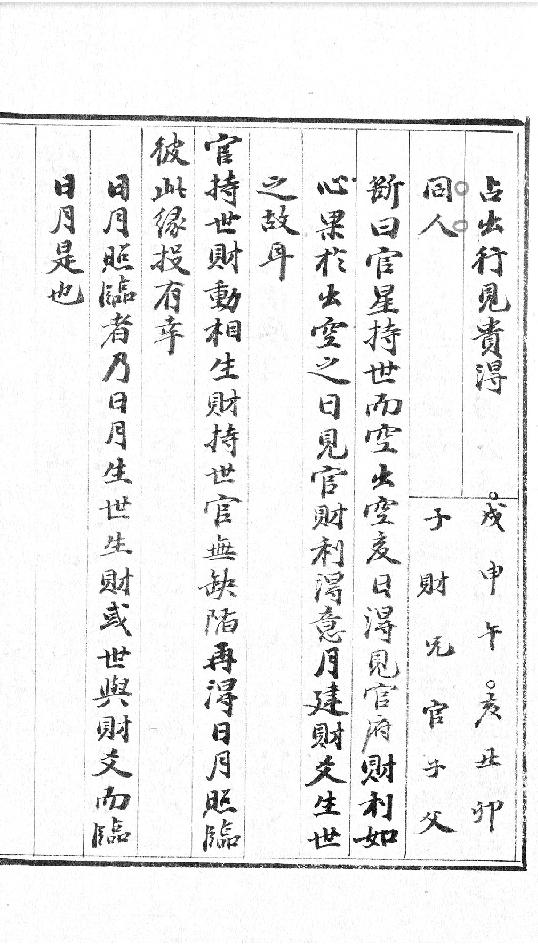 占出行見貴得
同人
戌申午亥丑卯
子財兄官子父
斷曰官星持世而空出空亥日得見官府財利如
心果於出空之日見官財利得意月建財爻生世
之故耳
官持世財動相生財持世官無缺陷再得日月照臨
彼此緣投有幸
日月照臨者乃日月生世生財或世與財爻而臨
日月是也